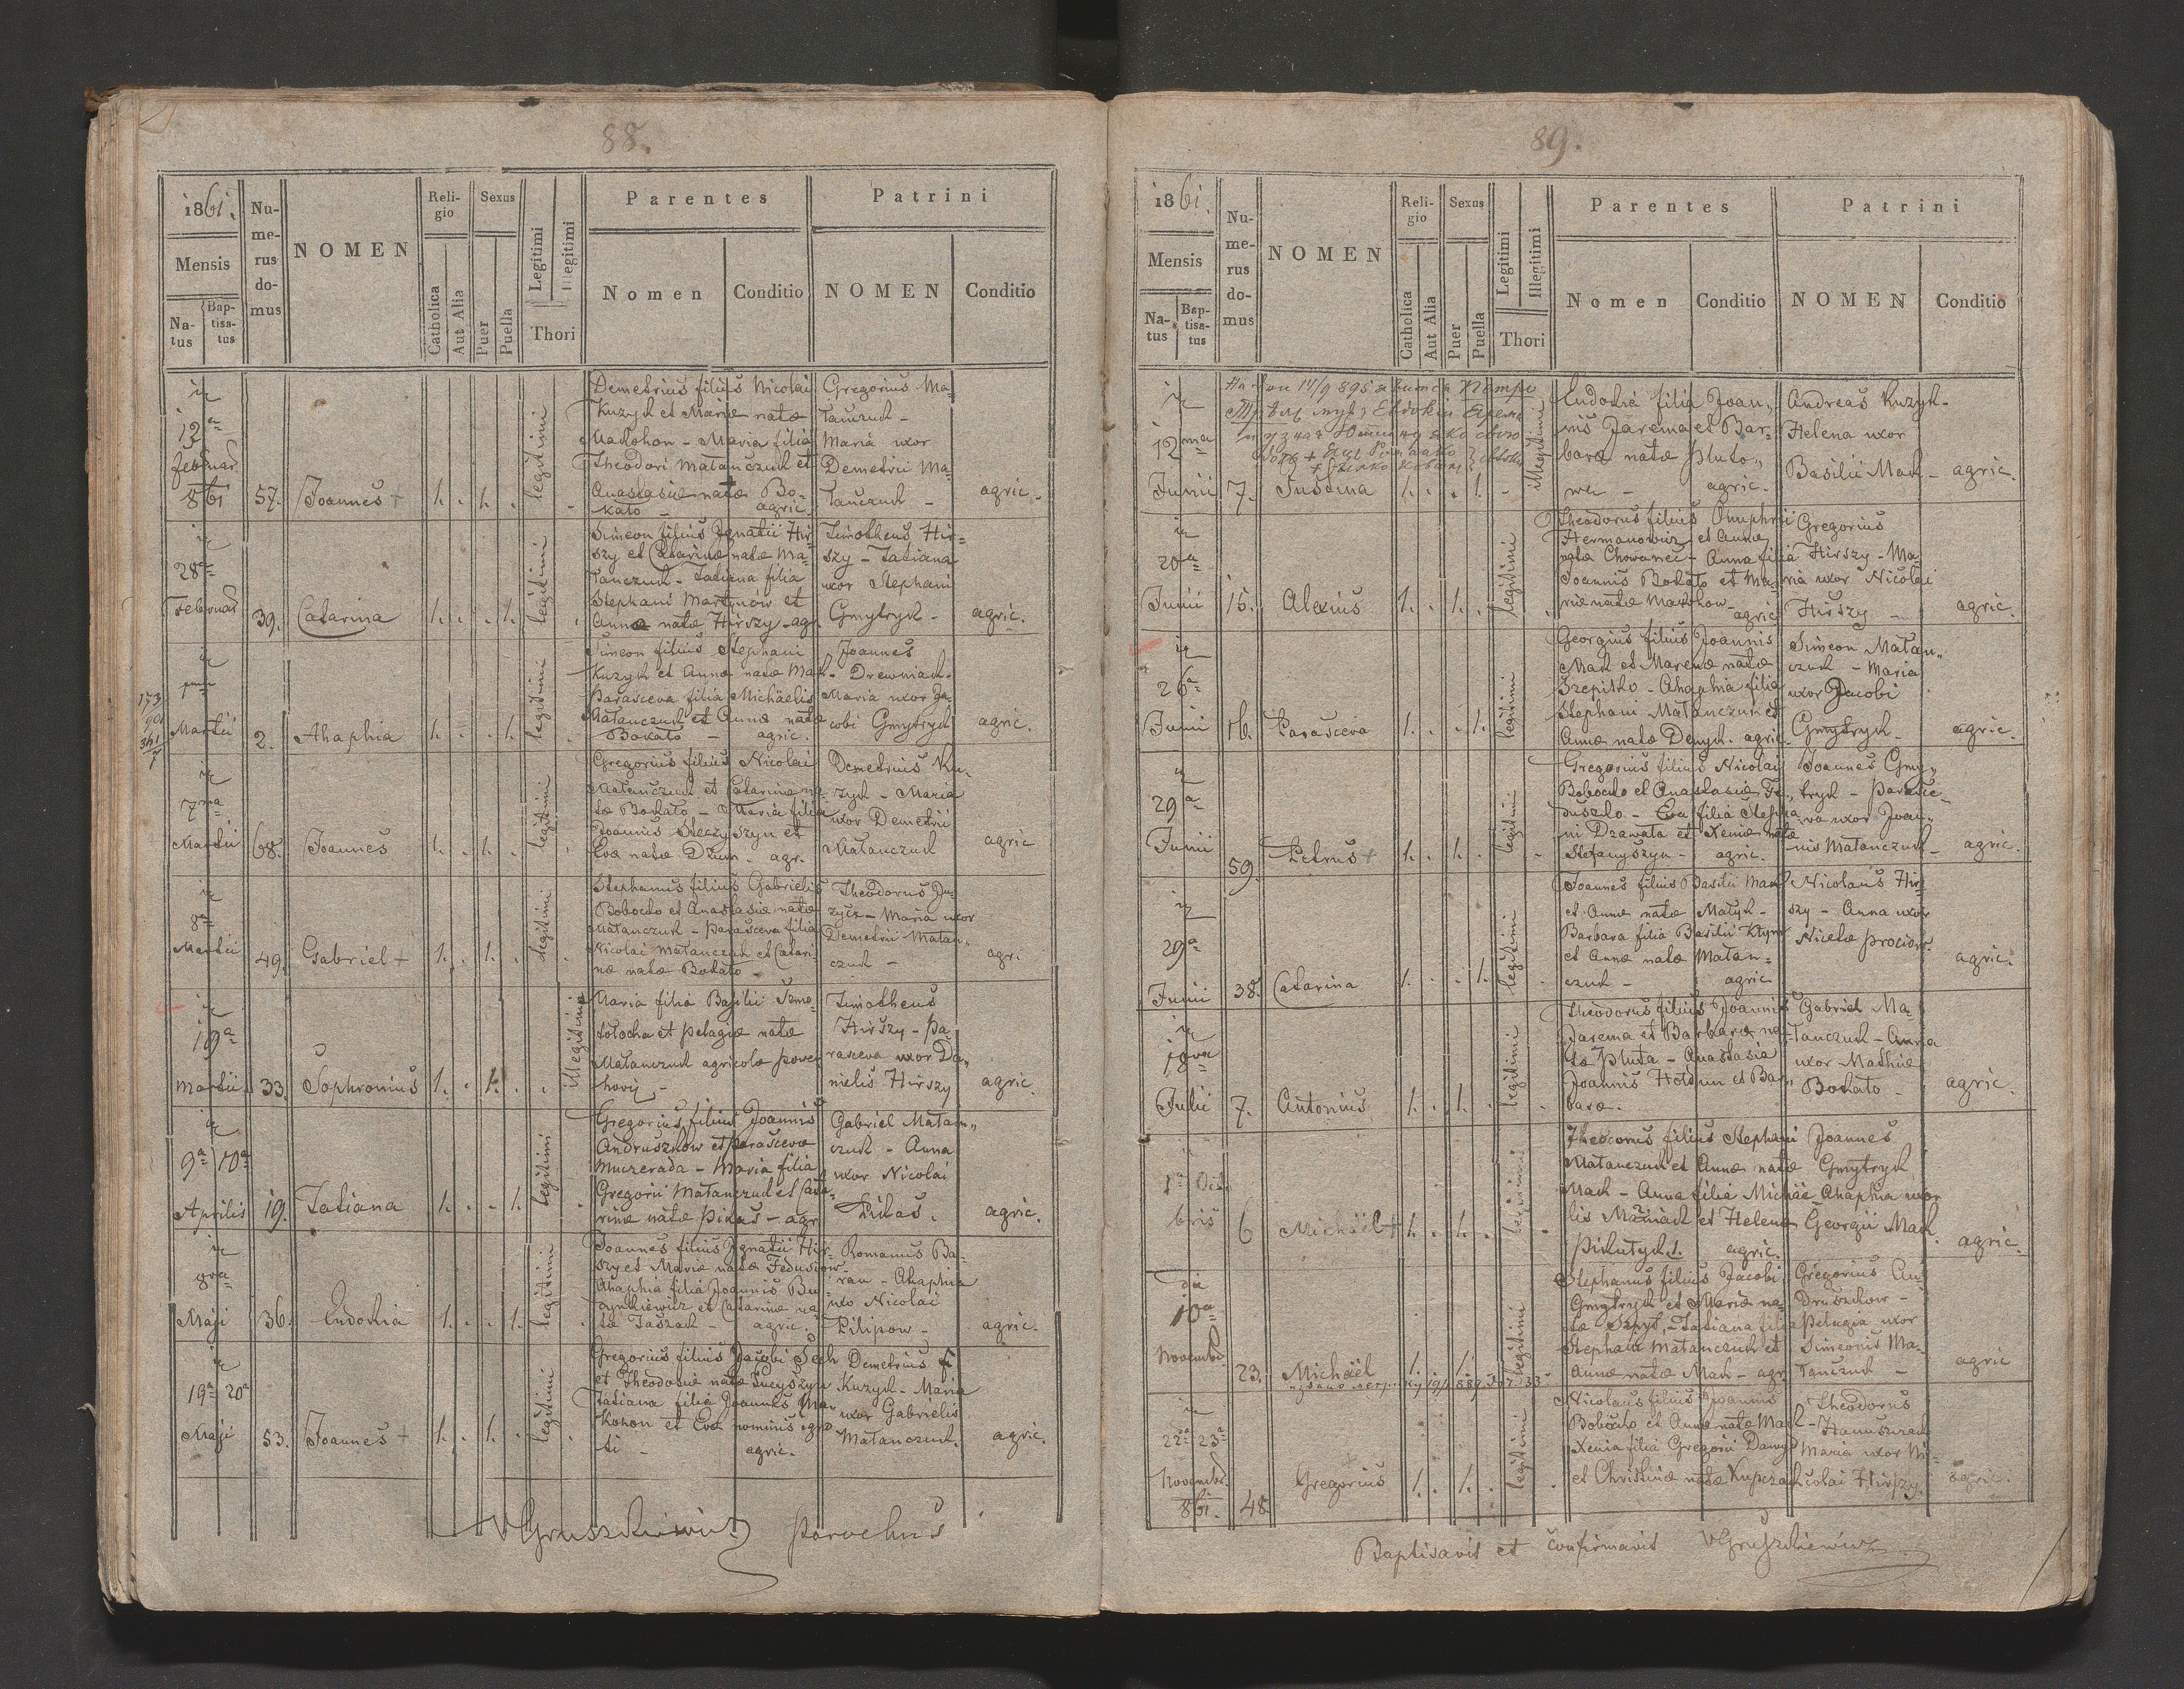 88.
1861.
Mensis
Na-
tus
Bap-
tisa-
tus
Nu-
me-
rus
do-
mus
NOMEN
Reli-
gio
Catholica
Aut Alia
Sexus
Puer
Puella
Legitimi
Illegitimi
Thori
Parentes
Nomen
Conditio
Patrini
NOMEN
Conditio
12a
februar
861
57.
Joannes +
1. . 1. .
legitimi
Demetrius filius Nicolai
Kuzyk et Mariæ natæ
Makohon - Maria filia
Theodori Matanczuk et
Anastasiæ natæ Bo-
kato - agric.
Gregorius Ma-
tanczuk -
Maria uxor
Demetrii Ma-
tanczuk -
agric.
28a
Februar
39.
Catarina
1. . . 1.
legitimi
Simeon filius Ignatii Hir-
szy et Catarinæ natæ Ma-
tanczuk - Tatiana filia
Stephani Martynów et
Annæ natæ Hirszy - agr.
Timotheus Hir-
szy - Tatiana
uxor Stephani
Gmytryk -
agric.
Martii
2.
Ahaphia
1. . . 1.
legitimi
Simeon filius Stephani
Kuzyk et Annæ natæ Mak -
Parasceva filia Michäelis
Matanczuk et Annæ natæ
Bokato - agric.
Joannes
Drewniak -
Maria uxor Ja-
cobi Gmytryk
agric.
7ma
Martii
68.
Joannes
1. . 1. .
legitimi
Gregorius filius Nicolai
Matanczuk et Catarinæ na-
tæ Bokato - Maria filia
Joannis Steczyszyn et
Evæ natæ - agr.
Demetrius Ku-
zyk - Maria
uxor Demetrii
Matanczuk
agric
8a
Martii
49.
Gabriel +
1. . 1. .
legitimi
Stephanus filius Gabrielis
Bobocko et Anastasiæ natæ
Matanczuk - Parasceva filia
Nicolai Matanczuk et Catari-
næ natæ Bokato -
Theodorus
Maria uxor
Demetrii Matan-
czuk -
agr.
19a
Martii
33.
Sophronius
1. . 1. .
illegitimi
Maria filia Basilii Szmo-
tolocha et Pelagiæ natæ
Matanczuk agricolæ
Timotheus
Hirszy - Pa-
rasceva uxor Da-
nielis Hirszy
agric
9a 10a
Aprilis
19.
Tatiana
1. . . 1.
legitimi
Gregorius filius Joannis
Andruszkow et Parascevæ
Muczerada - Maria filia
Gregorii Matanczuk et Cata-
rinæ natæ Pikas - agr
Gabriel Matan-
czuk - Anna
uxor Nicolai
Pikas.
agric.
8va
Maji
36.
Eudokia
1. . . 1.
legitimi
Joannes filius Ignatii Hir-
szy et Mariæ natæ Fedusiow -
Ahaphia filia Joannis
et Catarinæ na-
tæ - agric.
Romanus Ba-
ran - Ahaphia
uxo Nicolai
Pilipow -
agric.
19a 20a
Maji
53.
Joannes +
1. . 1. .
legitimi
Gregorius filius Jacobi
et Theodosiæ natæ
Tatiana filia Joannis Ma-
kohon et Evæ nominis igno-
ti - agric.
Demetrius fi
Kuzyk - Maria
uxor Gabrielis
Matanczuk.
agric.
VGruszkiewicz parochus
89.
1861.
Mensis
Na-
tus
Bap-
tisa-
tus
Nu-
me-
rus
do-
mus
NOMEN
Reli-
gio
Catholica
Aut Alia
Sexus
Puer
Puella
Legitimi
Illegitimi
Thori
Parentes
Nomen
Conditio
Patrini
NOMEN
Conditio
12ma
Junii
7.
Justina
1. . . 1.
illegitimi
Eudokia filia Joan-
nis Jarema et Bar-
baræ natæ Pluto-
wa - agric.
Andreas Kuzyk -
Helena uxor
Basilii Mak -
agric.
20a
Junii
15.
Alexius
1. . 1. .
legitimi
Theodorus filius Onuphrii
Hermanowicz et Annæ
natæ Chowanec - Anna filia
Joannis Bokato et Ma-
riæ natæ Makohow - agric
Gregorius
Hirszy - Ma-
ria uxor Nicolai
Hirszy -
agric.
26a
Junii
16.
Parasceva
1. . . 1.
legitimi
Georgius filius Joannis
Mak et Marenæ natæ
Szepitko - Ahaphia filia
Stephani Matanczuk et
Annæ natæ Denyk. agric.
Simeon Matan-
czuk - Maria
uxor Jacobi
Gmytryk -
agric.
29a
Junii
59.
Petrus +
1. . 1. .
legitimi
Gregorius filius Nicolai
Bobocko et Anastasiæ Fe-
duszko - Eva filia Stepha-
ni Dzewata et Xeniæ natæ
Stefanyszyn - agric.
Joannes Gmy-
tryk - Parasce-
va uxor Joan-
nis Matanczuk -
agric.
29a
Junii
38.
Catarina
1. . . 1.
legitimi
Joannes filius Basilii Mak
et Annæ natæ Matyk -
Barbara filia Basilii Klym
et Annæ natæ Matan-
czuk - agric
Nicolaus Hir-
szy - Anna uxor
Nicetæ Prociow.
agric.
18va
Julii
7.
Antonius
1. . 1. .
legitimi
Theodorus filius Joannis
Jarema et Barbaræ na-
tæ Pluta - Anastasia
Joannis Holdun et Bar-
baræ.
Gabriel Ma-
tanczuk - Anna
uxor Mathiæ
Bokato -
agric.
1a Octo-
bris
6
Michäel +
1. . 1. .
legitimi
Theodorus filius Stephani
Matanczuk et Annæ natæ
Mak - Anna filia Michäe-
lis et Helenæ
agric.
Joannes
Gmytryk
Ahaphia uxor
Georgii Mak.
agric.
10a
Novembr
23.
Michäel
1. . 1. .
legitimi
Stephanus filius Jacobi
Gmytryk et Mariæ na-
tæ - Tatiana filia
Stephani Matanczuk et
Annæ natæ Mak - agr
Gregorius An-
druszkow -
Pelagia uxor
Simeonis Ma-
tanczuk -
agric
22a 23a
Novembr
861.
48
Gregorius
1. . 1. .
legitimi
Nicolaus filius Joannis
Bobocko et Annæ natæ Mak -
Xenia filia Gregorii
et Christinæ natæ Kupczak
Theodorus
Hanuszczak
Maria uxor Ni-
colai Hirszy.
agric.
Baptisavit et confirmavit VGruszkiewicz